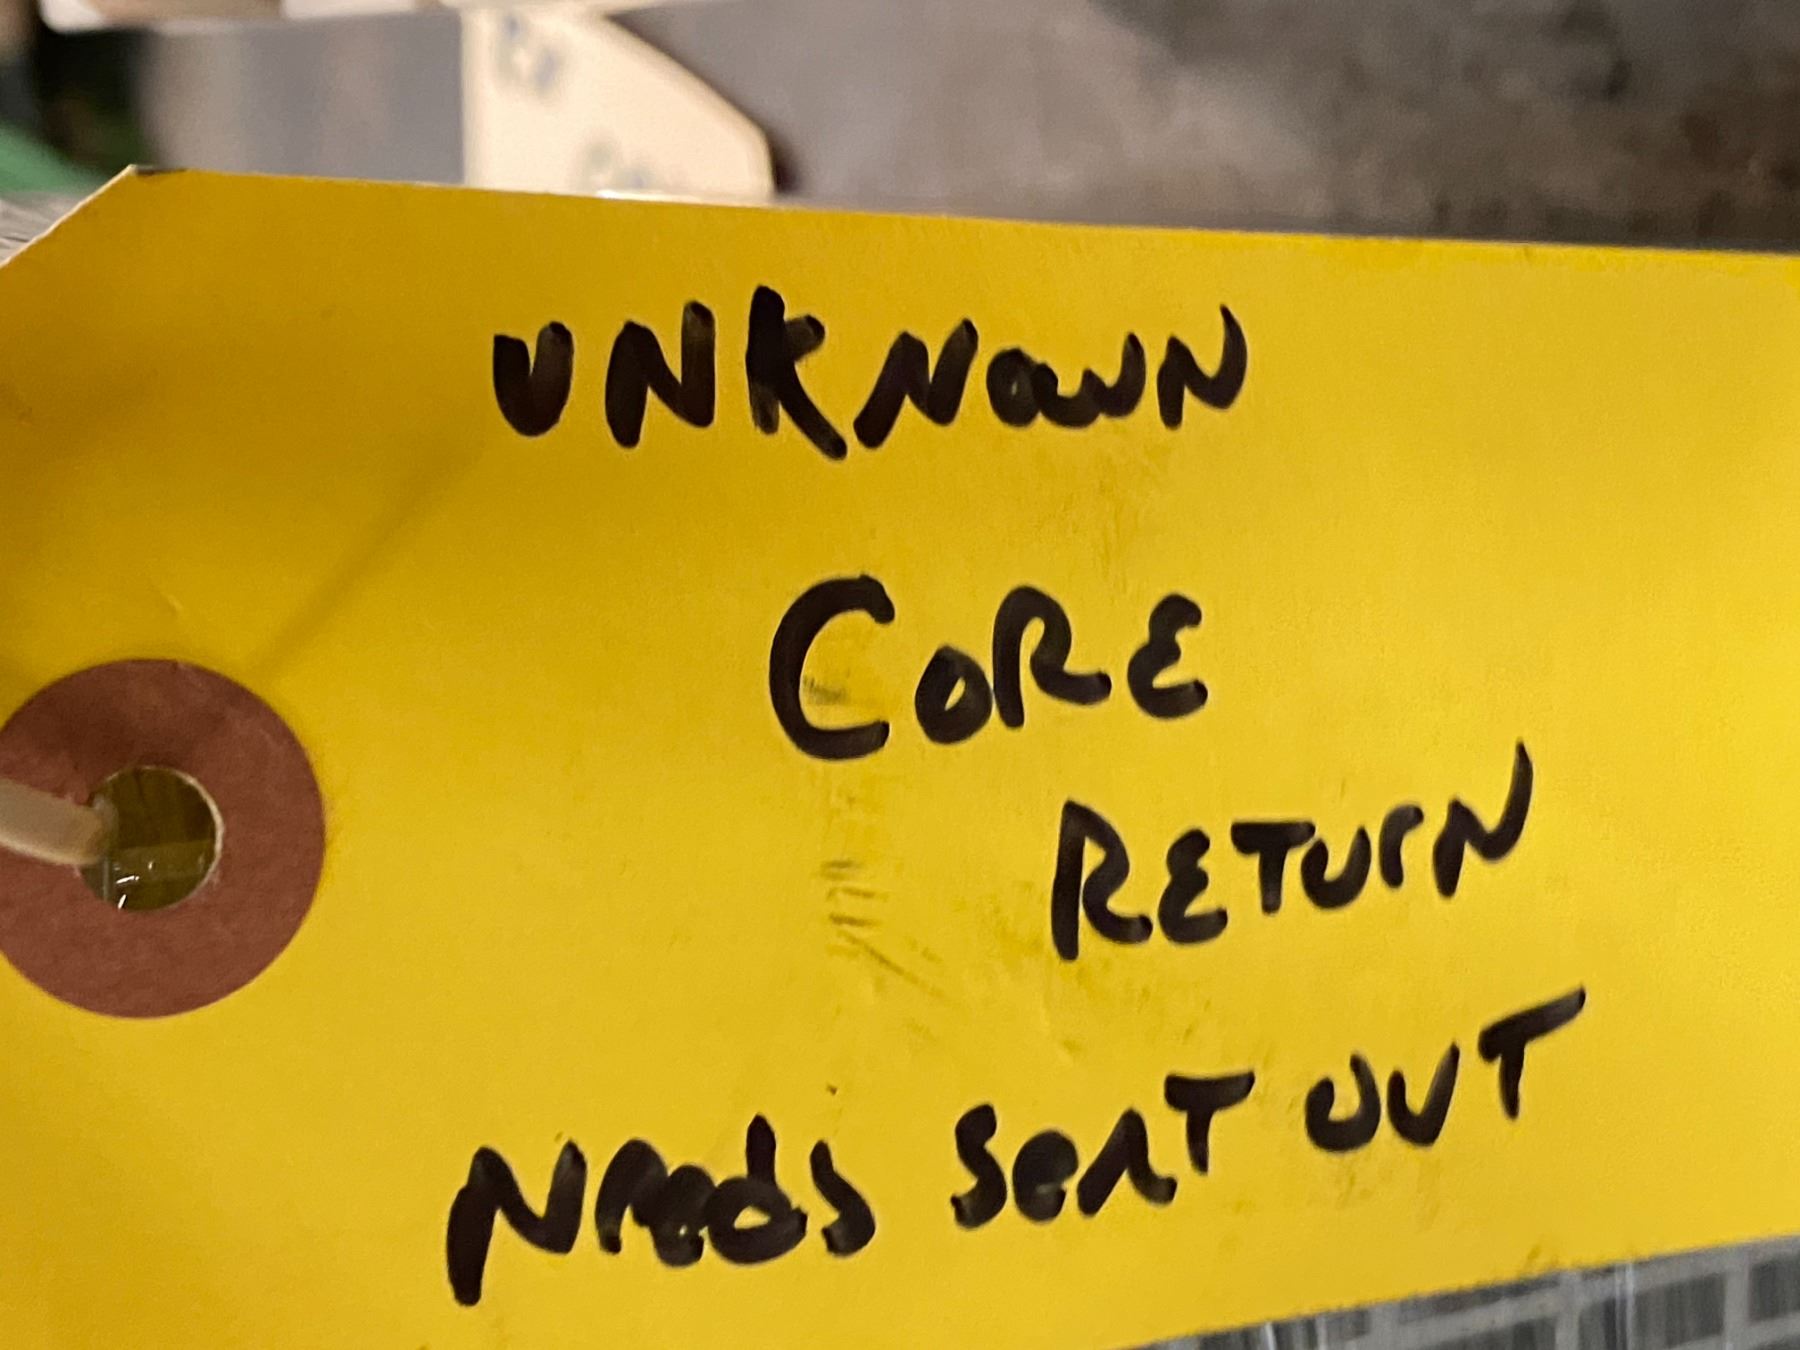 UNKNOWN
CORE
RETURN
Needs SeAT OUT